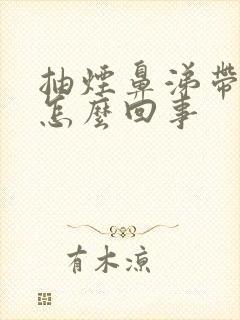 抽煙鼻涕帶
怎麼回事
有木涼